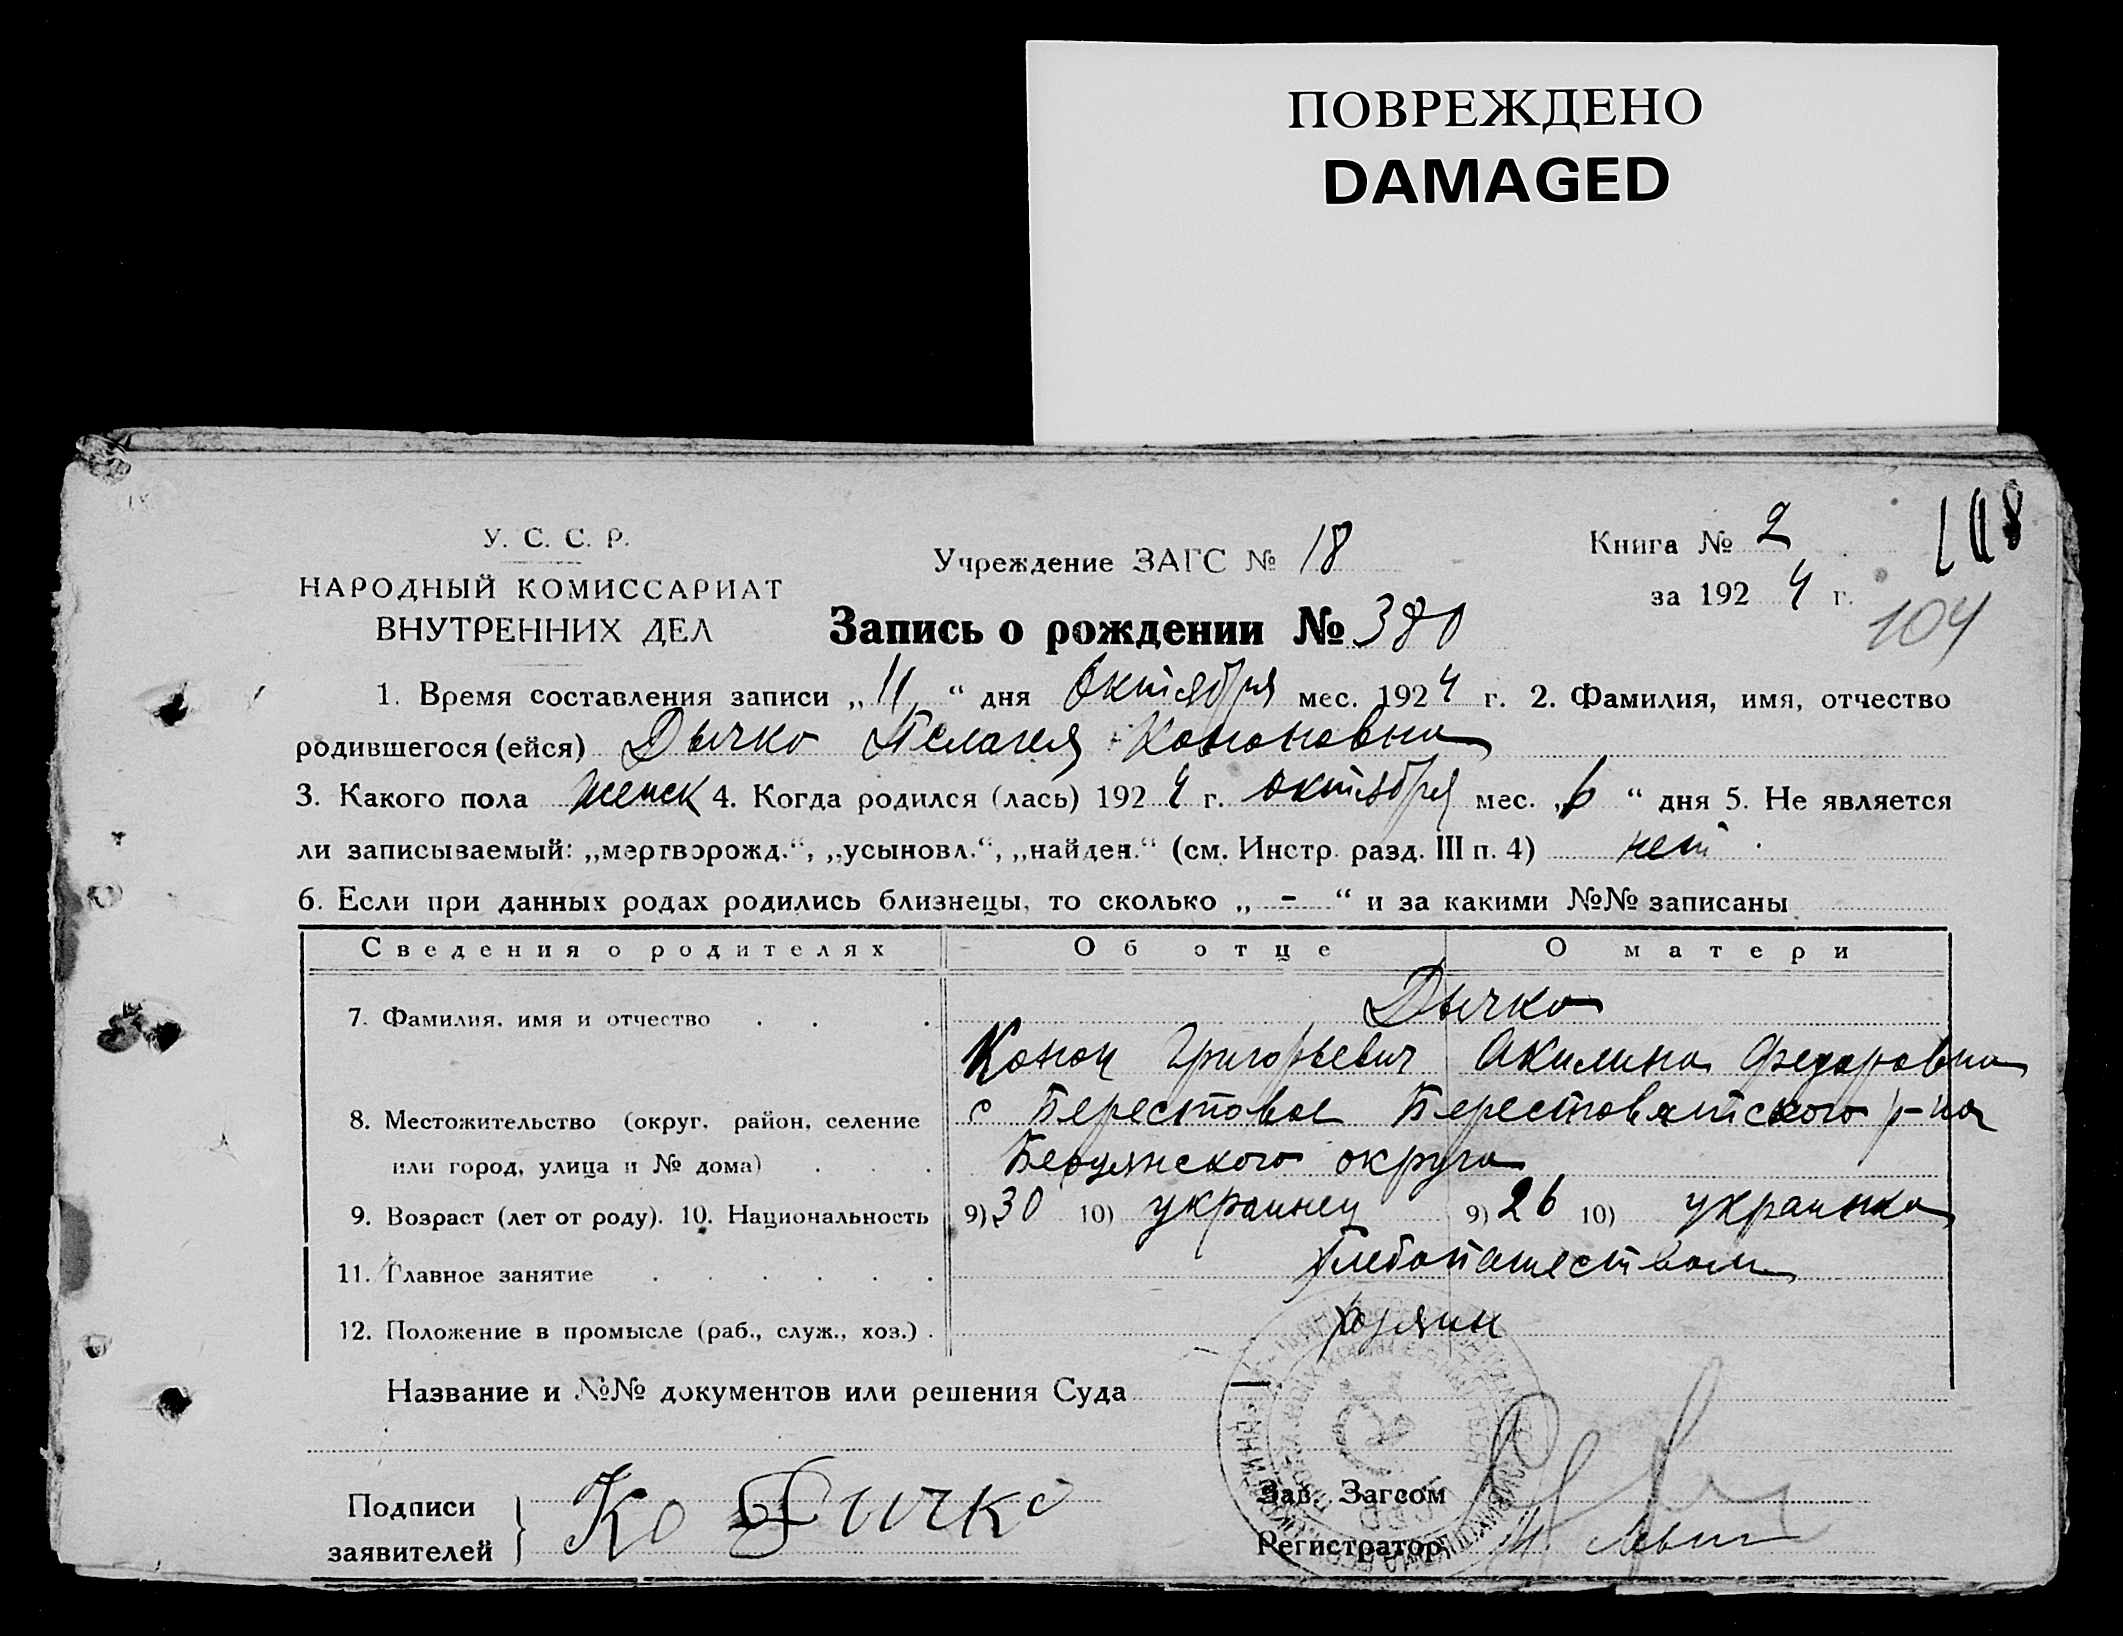 ПОВРЕЖДЕНО
DAMAGED
У. С. С. Р.
НАРОДНЫЙ КОМИССАРИАТ
ВНУТРЕННИХ ДЕЛ
Учреждение ЗАГС № 18
Книга № 2
за 1924 г.
104
Запись о рождении № 380
1. Время составления записи „11“ дня Октября мес. 1924 г. 2. Фамилия, имя, отчество
родившегося (ейся) Дычко Пелагея Кононовна
3. Какого пола женск 4. Когда родился (лась) 1924 г. октября мес. „6“ дня 5. Не является
ли записываемый: „мертворожд.“, „усыновл.“, „найден.“ (см. Инстр. разд. III п. 4) нет
6. Если при данных родах родились близнецы, то сколько „ - “ и за какими №№ записаны
Сведения о родителях Об отце О матери
7. Фамилия, имя и отчество . . . Дычко
Конон Григорьевич Акилина Федоровна
8. Местожительство (округ, район, селение с Берестовое Берестоватского р-на
или город, улица и № дома) . . . Бердянского округа
9. Возраст (лет от роду). 10. Национальность 9) 30 10) украинец 9) 26 10) украинка
11. Главное занятие . . . . . . Хлебопашеством
12. Положение в промысле (раб., служ., хоз.) . хозяин
Название и №№ документов или решения Суда
Подписи заявителей } Ко Дичко
Зав. Загсом
Регистратор